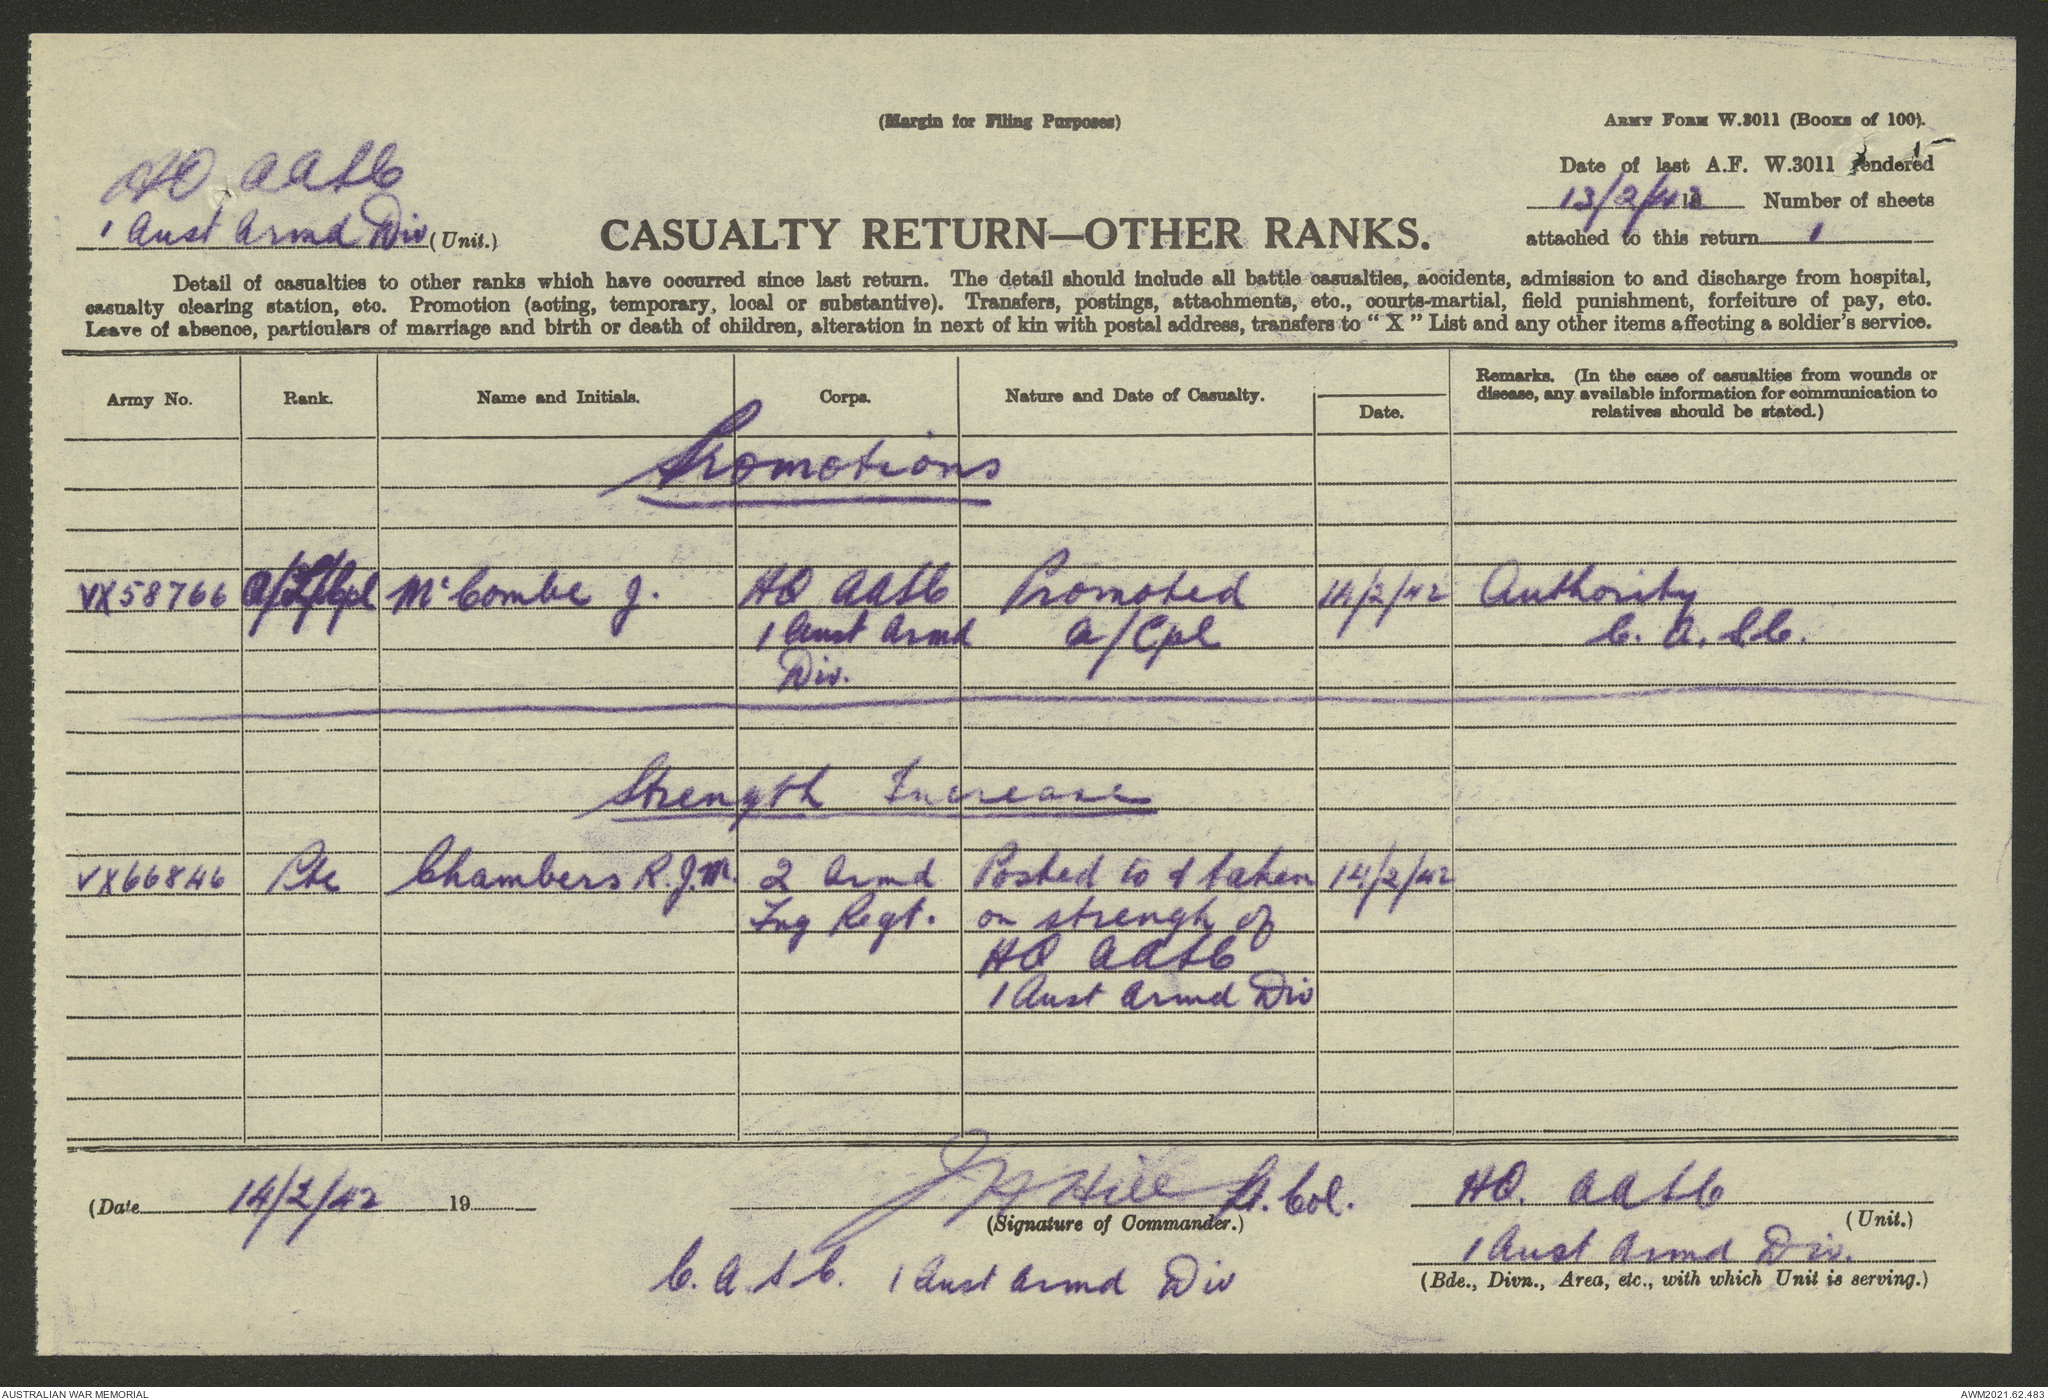 (Margin for Filing Purposes)
ARMY FORM W.3011 (BOOKS of 100).
HQ AASC
1 Aust Armd Div (Unit.)
Date of last A.F. W.3011 rendered
13/2/42 19 Number of sheets
attached to this return 1
CASUALTY RETURN—OTHER RANKS.
Detail of casualties to other ranks which have occurred since last return. The detail should include all battle casualties, accidents, admission to and discharge from hospital,
casualty clearing station, etc. Promotion (acting, temporary, local or substantive). Transfers, postings, attachments, etc., courts-martial, field punishment, forfeiture of pay, etc.
Leave of absence, particulars of marriage and birth or death of children, alteration in next of kin with postal address, transfers to “ X ” List and any other items affecting a soldier's service.
Army No. Rank. Name and Initials. Corps. Nature and Date of Casualty. Date. Remarks. (In the case of casualties from wounds or
disease, any available information for communication to
relatives should be stated.)
Promotions
VX58766 McCombe J. HQ AASC Promoted 14/2/42 Authority
1 Aust Armd A/Cpl C. A. S. C.
Div.
Strength Increase
VX66846 Pte Chambers R.J.M. 2 Armd Posted to & taken 14/2/42
Trg Regt. on strength of
HQ AASC
1 Aust Armd Div
(Date 14/2/42 19 J Hill Lt. Col. HQ. AASC
(Signature of Commander.) (Unit.)
C.A.S.C. 1 Aust Armd Div 1 Aust Armd Div.
(Bde., Divn., Area, etc., with which Unit is serving.)
AUSTRALIAN WAR MEMORIAL AWM2021.62.483